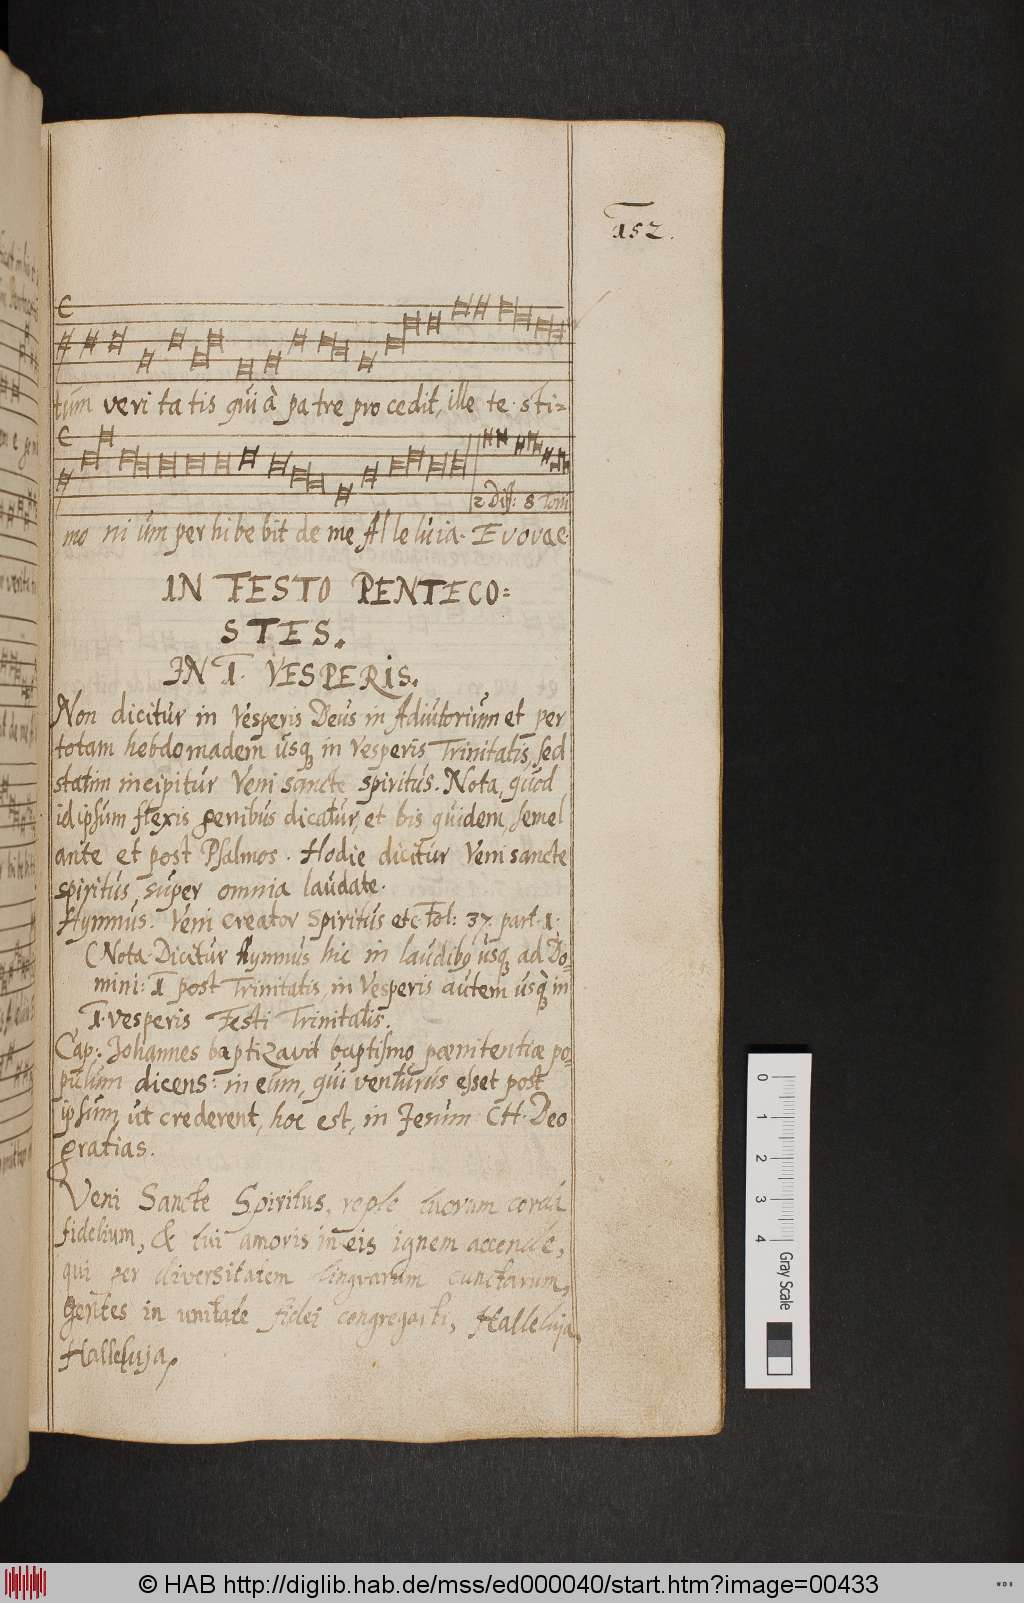 152.
tum veri ta tis qui à pa tre pro cedit, ille te sti=
2 Diff: 8 Toni
mo ni um per hi be bit de me Al le luia. Evovae.
IN FESTO PENTECO=
STES.
IN 1. VESPERIS.
Non dicitur in Vesperis Deus in Adiutorium et per
totam hebdomadem usq in Vesperis Trinitatis, sed
statim incipitur Veni sancte spiritus. Nota, quod
id ipsum flexis genibus dicatur, et bis quidem, semel
ante et post Psalmos. Hodie dicitur Veni sancte
spiritus, super omnia laudate.
Hymnus. Veni creator Spiritus etc Fol: 37. part. 1.
(Nota Dicitur Hymnus hic in laudibq usq ad Do=
mini: 1 post Trinitatis, in Vesperis autem usq in
1. vesperis Festi Trinitatis.
Cap: Johannes baptizavit baptismo pœnitentiæ po=
pulum dicens: in eum, qui venturus esset post
ipsum, ut crederent, hoc est, in Jesum CH. Deo
gratias.
Veni Sancte Spiritus, reple tuorum corda
fidelium, & tui amoris in eis ignem accende,
qui per diversitatem lingvarum cunctarum,
Gentes in unitate fidei congregasti, Halleluja,
Halleluja,
0 1 2 3 4 Gray Scale
© HAB http://diglib.hab.de/mss/ed000040/start.htm?image=00433